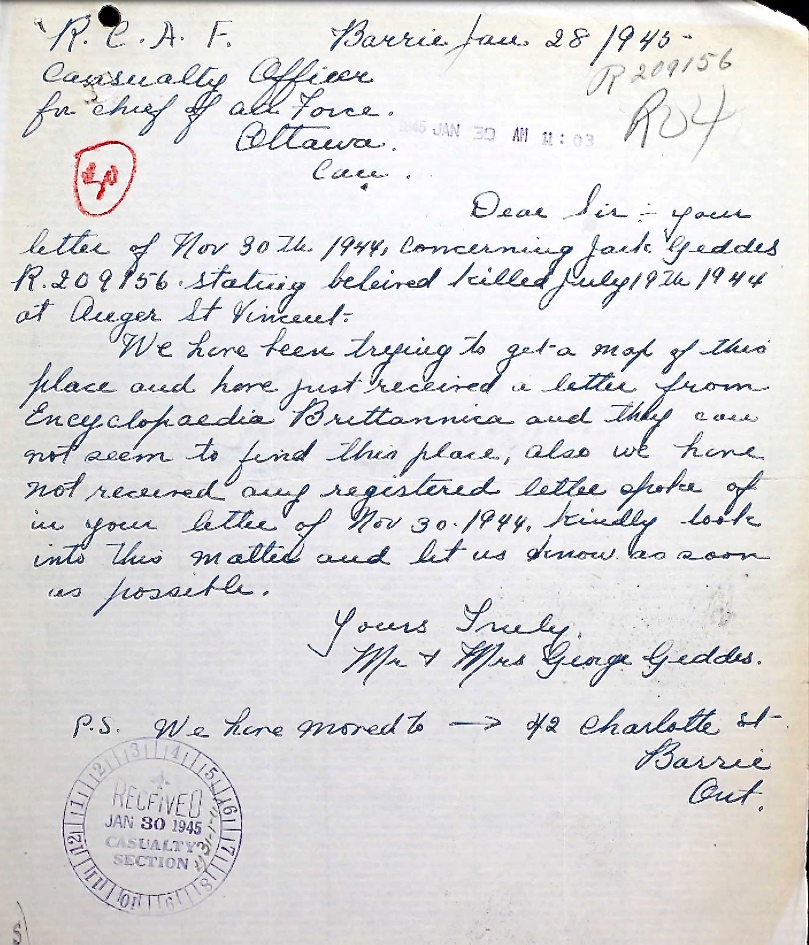 R. C. A. F. Barrie Jan 28/1945
R 209156
Casualty Officer
for chief of air Force.
R04
Ottawa.
1945 JAN 30 AM 11:03
Can.
Dear Sir :- your
letter of Nov 30th 1944, concerning Jack Geddes
R.209156. stating beleived killed July 19th 1944
at Anger St Vincent.
We have been trying to get a map of this
place and have just received a letter from
Encyclopaedia Brittannica and they can
not seem to find this place, also we have
not received any registered letter spoke of
in your letter of Nov 30. 1944. kindly look
into this matter and let us know as soon
as possible.
Yours Truly,
Mr & Mrs George Geddes.
P.S. We have moved to → 42 Charlotte St
Barrie
Ont.
1 2 3 4 5 6 7 8 9 10 11 12
RECEIVED
JAN 30 1945
CASUALTY
SECTION